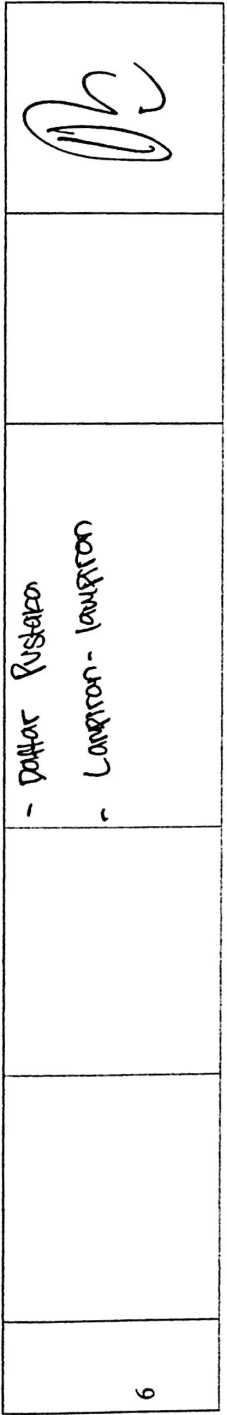 6
- Daftar Pustaka
- Lampiran - lampiran